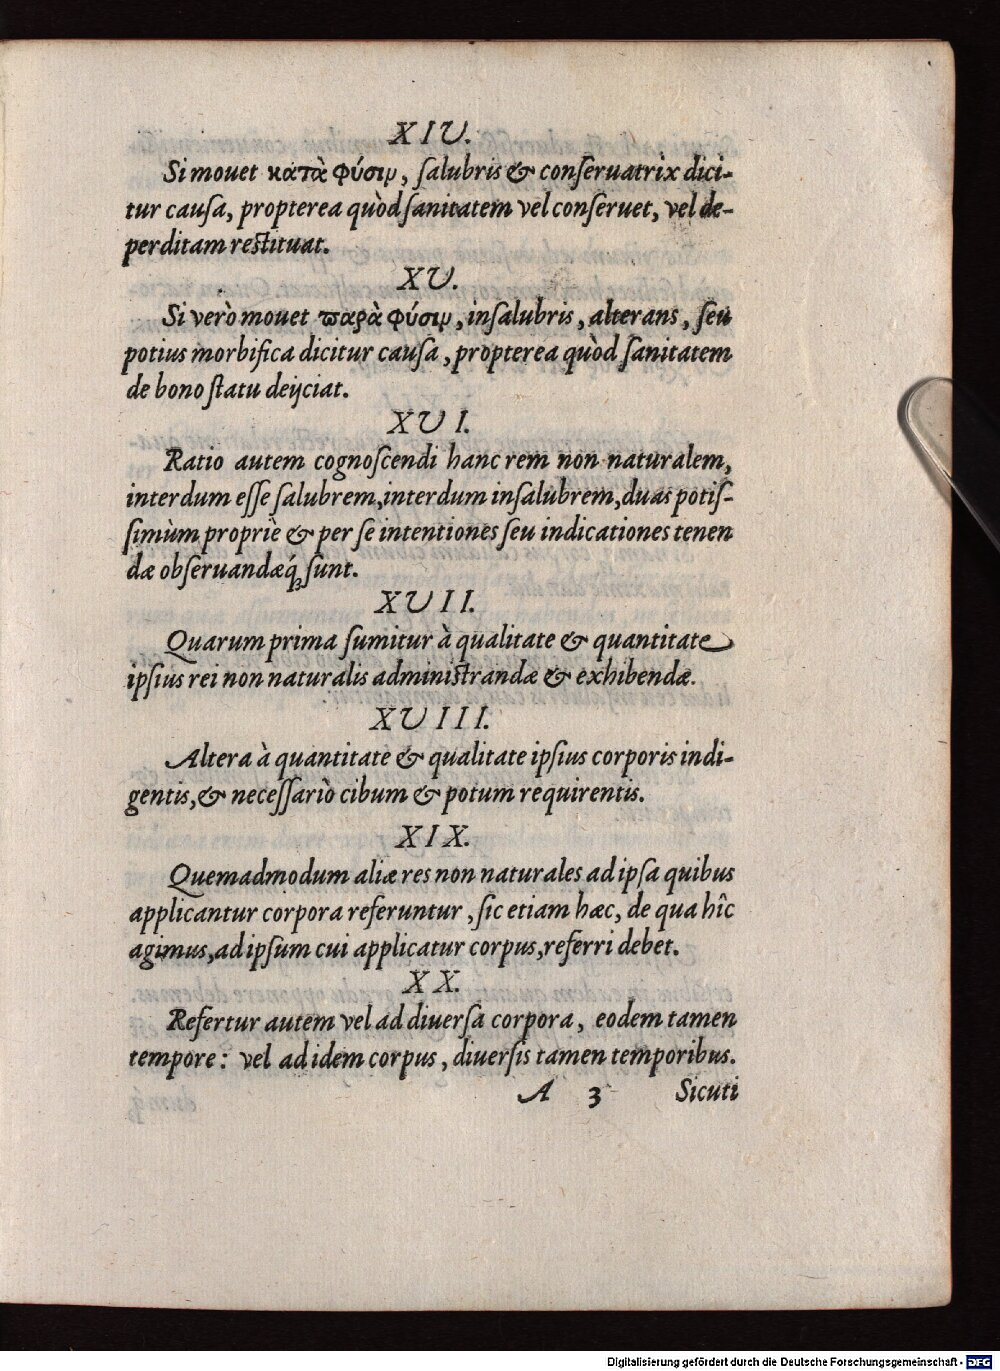 XIV.
Si mouet κατὰ φύσιν, ſalubris & conſeruatrix dici-
tur cauſa, propterea quòd ſanitatem vel conſeruet, vel de-
perditam reſtituat.
XV.
Si verò mouet παρὰ φύσιν, inſalubris, alterans, ſeu
potius morbifica dicitur cauſa, propterea quòd ſanitatem
de bono ſtatu deijciat.
XVI.
Ratio autem cognoſcendi hanc rem non naturalem,
interdum eſſe ſalubrem, interdum inſalubrem, duas potiſ-
ſimùm propriè & per ſe intentiones ſeu indicationes tenen
dæ obſeruandæq́ꝫ ſunt.
XVII.
Quarum prima ſumitur à qualitate & quantitate
ipſius rei non naturalis adminiſtrandæ & exhibendæ.
XVIII.
Altera à quantitate & qualitate ipſius corporis indi-
gentis, & neceſſariò cibum & potum requirentis.
XIX.
Quemadmodum aliæ res non naturales ad ipſa quibus
applicantur corpora referuntur, ſic etiam hæc, de qua hîc
agimus, ad ipſum cui applicatur corpus, referri debet.
XX.
Refertur autem vel ad diuerſa corpora, eodem tamen
tempore: vel ad idem corpus, diuerſis tamen temporibus.
A 3 Sicuti
Digitalisierung gefördert durch die Deutsche Forschungsgemeinschaft - DFG